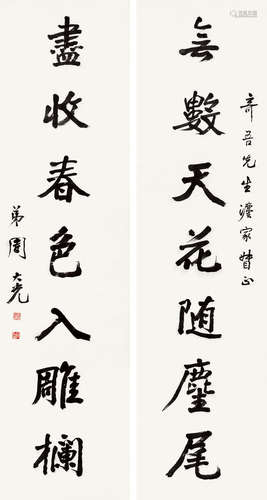 無數天花随麈尾
奇吾先生灋家督正
盡收春色入雕欄
弟周大光